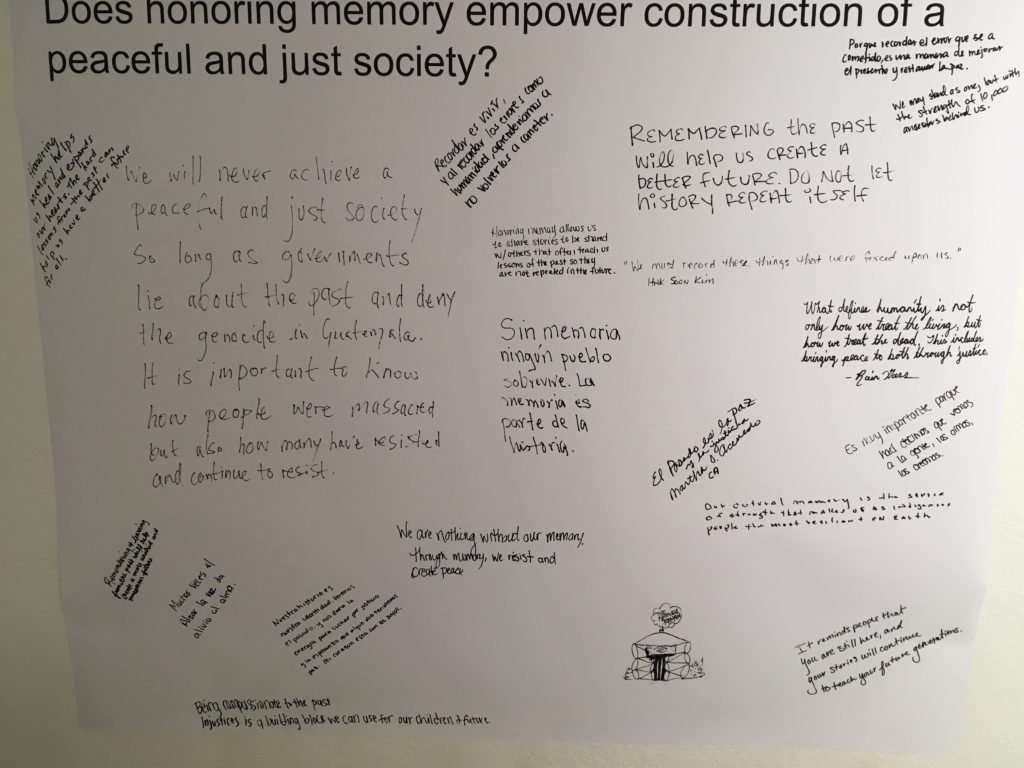 Does honoring memory empower construction of a
peaceful and just society?
Porque recordar el error que se a
cometido, es una manera de mejorar
el presente y restaurar la paz.
We may stand as one, but with
the strength of 10,000
ancestors behind us.
Recordar es vivir,
y al recordar los errores como
humanidad aprenderiamos a
no volverlos a cometer.
REMEMBERING the PAST
will help us CREATE A
better future. DO NOT let
history REPEAT itself
Honoring
memory helps
us heal and expands
our hearts. The hard
lessons from the past can
help us have a better future
for all.
We will never achieve a
peaceful and just society
So long as governments
lie about the past and deny
the genocide in Guatemala.
It is important to know
how people were massacred
but also how many have resisted
and continue to resist.
Honoring memory allows us
to share stories to be shared
w/others that often teach us
lessons of the past so they
are not repeated in the future.
"We must record these things that were forced upon us."
Hak Soon Kim
Sin memoria
ningún pueblo
sobrevive. La
memoria es
parte de la
historia.
What defines humanity is not
only how we treat the living, but
how we treat the dead. This includes
bringing peace to both through justice.
El
es la paz
y la justicia
Martha
CA
Es muy importante porque
haci decimos que vemos
a la gente, los aimos,
Our cultural memory is the source
of strength that makes us as indigenous
people the most resilient on Earth
We are nothing without our memory.
Through memory, we resist and
create peace
Muchas veces el
alzar la voz da
alivio al alma.
Nuestra historia es
nuestra identidad
el pasado, y nos dara la
energia para luchar por justicia
y la esperanza que algun dia tendremos
paz.
It reminds people that
you are still here, and
your stories will continue
to teach your future generations.
Being compassionate to the past
injustices is a building block we can use for our children & future.